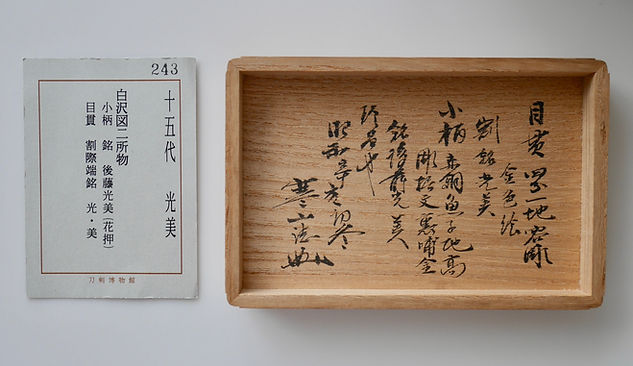 243
十五代 光美
白沢図二所物
小柄 銘 後藤光美(花押)
目貫 割際端銘 光・美
刀剣博物館
目貫 地容彫
金色絵
割銘光美
小柄 赤銅魚子地高
彫据文裏哺金
銘後藤光美
珍
昭和
寒山